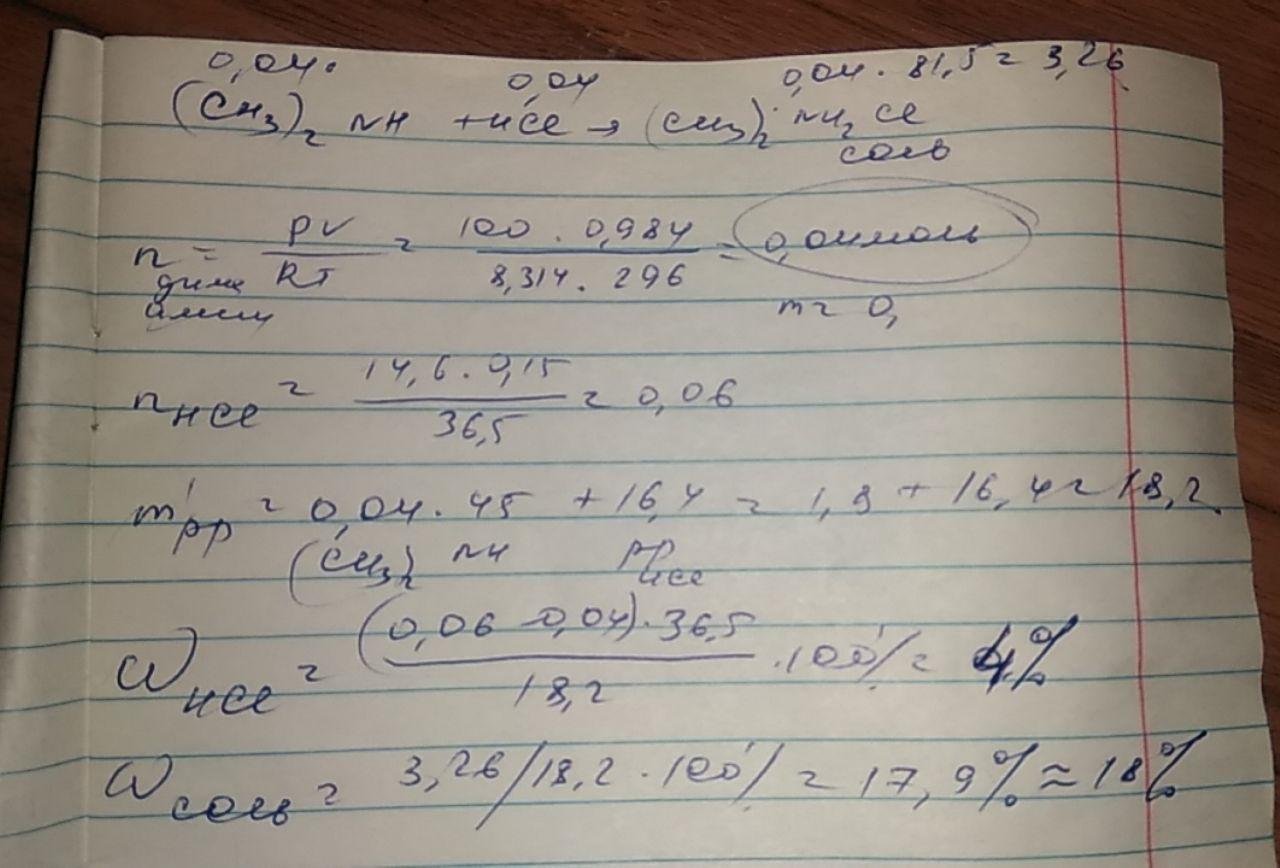 0,04. 0,04 0,04 · 81,5 = 3,26
(CH3)2 NH + HCl → (CH3)2 NH2 Cl
соль
n = PV / RT = 100 · 0,984 / 8,314 · 296 = 0,04 моль
диме
амин
m = 0,
nHCl = 14,6 · 0,15 / 36,5 = 0,06
m'рр = 0,04 · 45 + 16,4 = 1,8 + 16,4 = 18,2
(CH3)2 NH рр HCl
ωHCl = (0,06 - 0,04) · 36,5 / 18,2 · 100% = 4%
ωсоль = 3,26/18,2 · 100% = 17,9% ≈ 18%